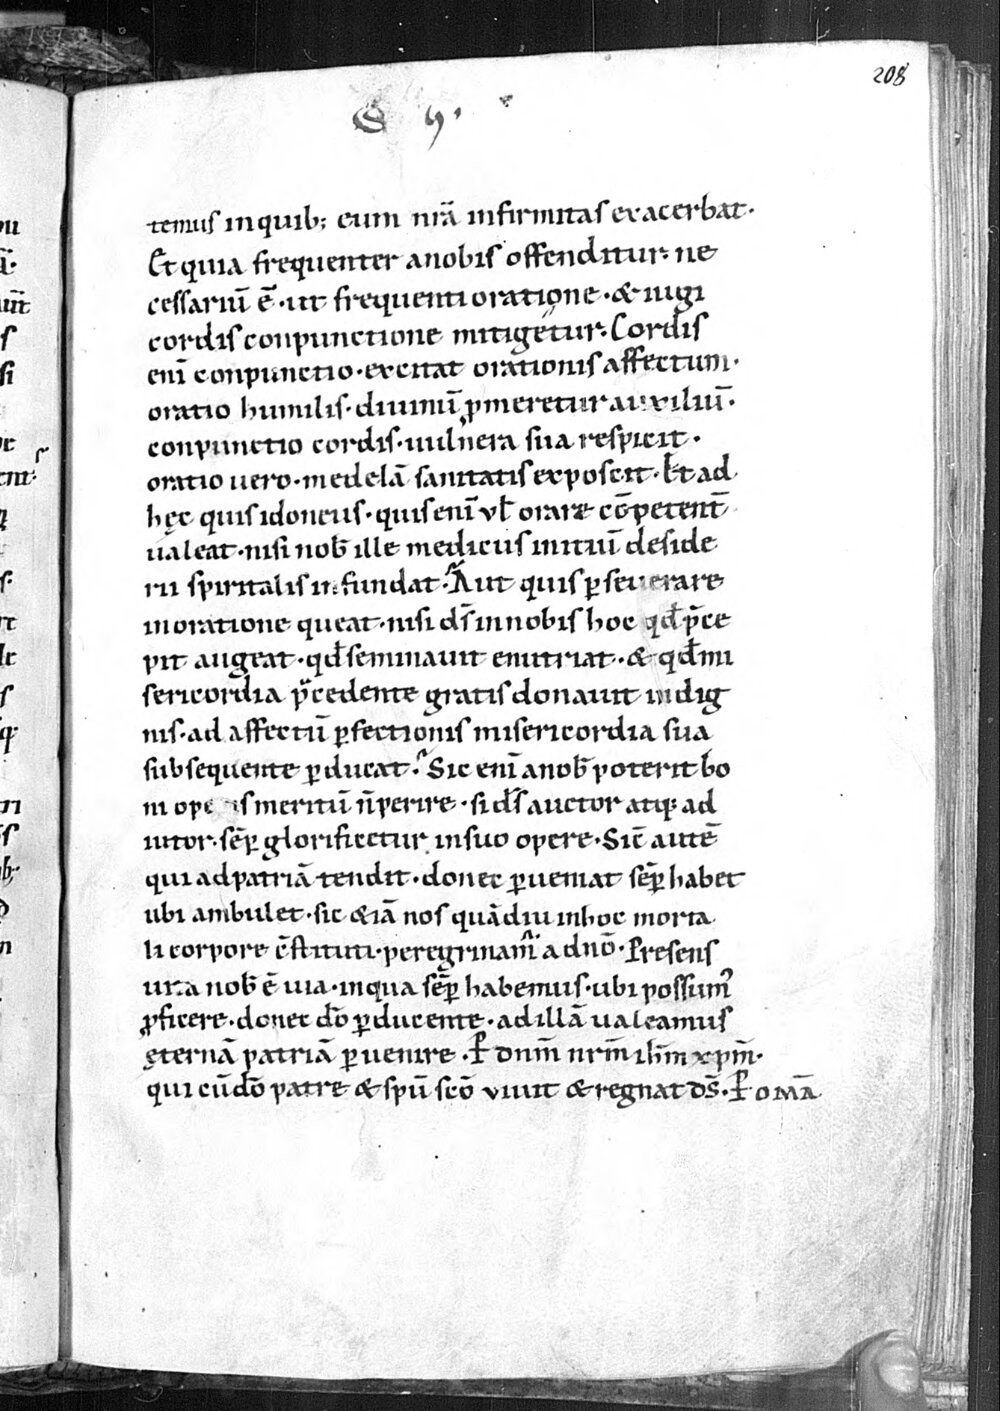 208
S y.
temus in quib; eum nrā infirmitas exacerbat.
Et quia frequenter anobis offenditur. ne
cessariū ē. ut frequenti oratione. & iugi
cordis conpunctione mitigetur. Cordis
enī conpunctio. excitat orationis affectum.
oratio humilis. diuinū ꝓmeretur auxiliū.
conpunctio cordis. uulnera sua respicit.
oratio uero. medelā sanitatis exposcit. Et ad
hęc quis idoneus. quis enī vƚ orare cōpetent̄
ualeat. nisi nob̄ ille medicus initiū deside
rii spiritalis infundat. Aut quis ꝑseuerare
in oratione queat. nisi ds̄ innobis hoc qđ p̄ce
pit augeat. qđ seminauit enutriat. & qđ mi
sericordia p̄cedente gratis donauit indig
nis. ad affectū ꝑfectionis misericordia sua
subsequente ꝑducat. Sic enī anob̄ poterit bo
ni operis meritū n̄ perire. si ds̄ auctor atq; ad
iutor. sēꝑ glorificetur insuo opere. Sic̄ autē
qui adpatriā tendit. donec ꝑueniat sēꝑ habet
ubi ambulet. sic &iā nos quādiu inhoc morta
li corpore c̄stituti. peregrinam̄ adnō. Presens
uita nob̄ ē uia. inqua sēꝑ habemus. ubi possum᾽
ꝓficere. donec dō ꝑducente. adillā ualeamus
ęternā patriā ꝑuenire. P̄ dnm̄ nrm̄ ihm̄ xpm̄.
qui cū dō patre & spū scō vivit & regnat ds̄. P̄ omā